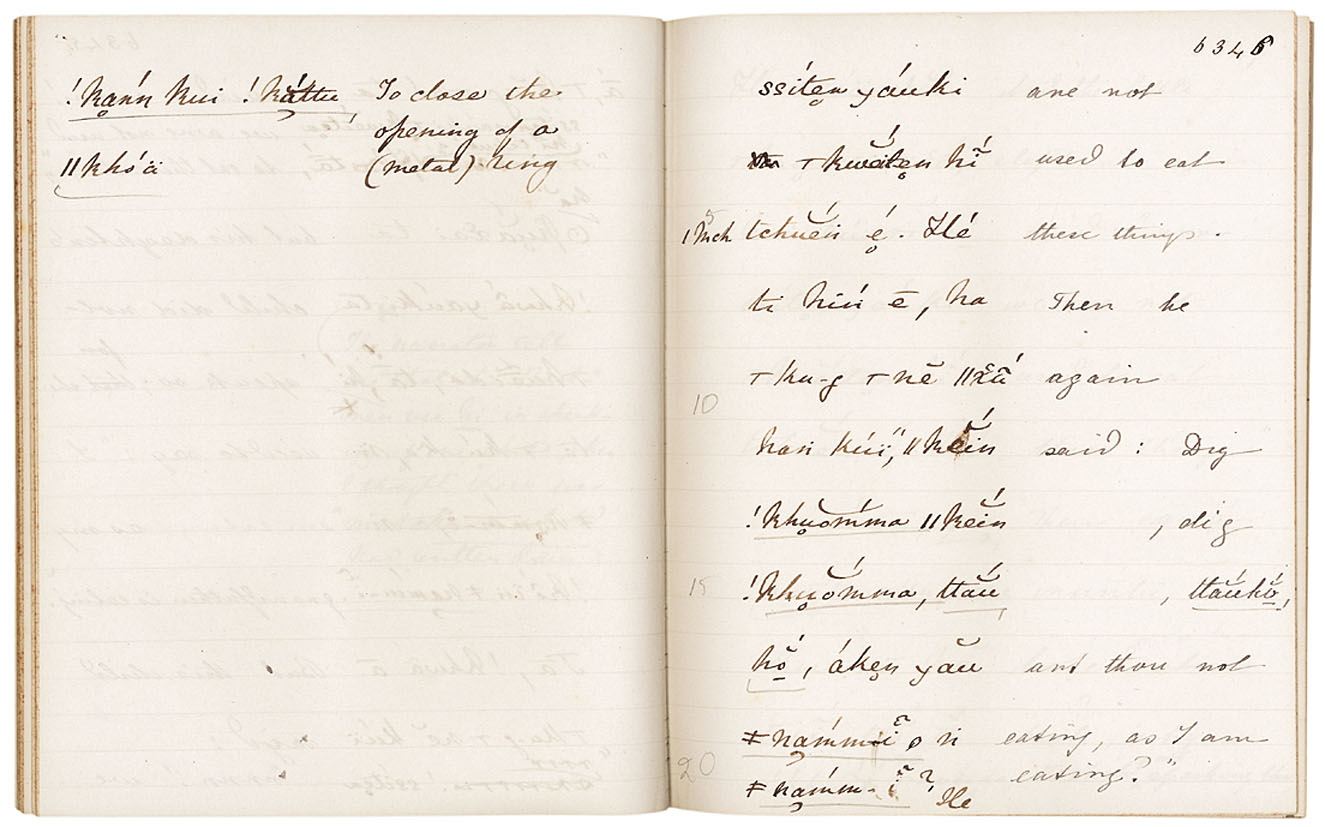 !kann kui !kăttu, To close the
opening of a
||khóä (metal) ring
6346
ssíten yáuki are not
⊤kwaíten hĭ́ used to eat
tchuĕ́n é. Hé these things.
ti hiń ē, ha Then he
⊤ku-g ⊤nē ||xắ again
10
han kúï, ||kĕ́in said: Dig
!khuómma ||kĕ́in , dig
15
!khuómma, ttắu , ttắukŏ,
hŏ́, áken yău and thou not
≠námm-ĭ, ŋ eating, as I am
20
≠námm-ĭ? He eating?"